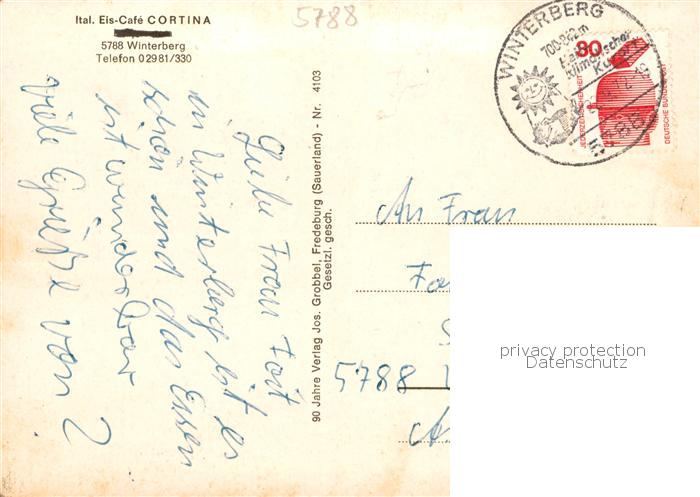 Ital. Eis-Café CORTINA
5788 Winterberg
Telefon 0 29 81/330
5788
WINTERBERG
700-842m
80
JEDERZEIT SICHERHEIT
DEUTSCHE BUNDESPOST
90 Jahre Verlag Jos. Grobbel, Fredeburg (Sauerland) - Nr. 4103
Gesetzl. gesch.
Liebe Frau Foit
in Winterberg ist es
schön und das Essen
ist wunderbar
Viele Grüße von ?
An Frau
5788
privacy protection
Datenschutz